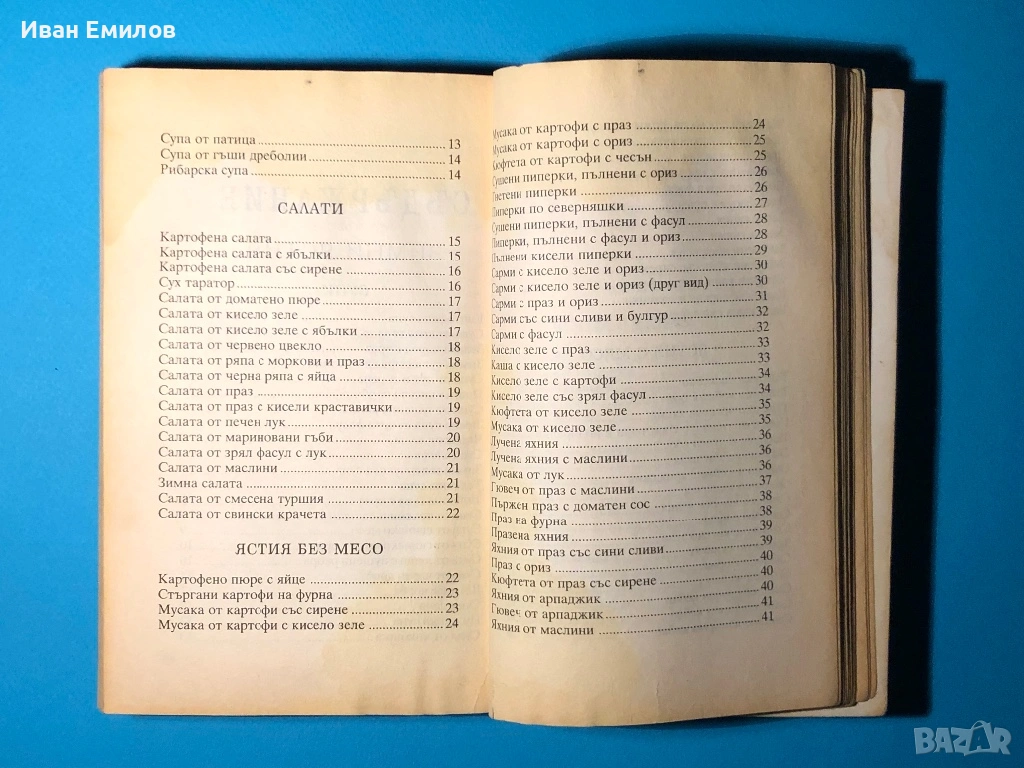 Иван Емилов
Супа от патица 13
Супа от гъши дреболии 14
Рибарска супа 14
САЛАТИ
Картофена салата 15
Картофена салата с ябълки 15
Картофена салата със сирене 16
Сух таратор 16
Салата от доматено пюре 17
Салата от кисело зеле 17
Салата от кисело зеле с ябълки 17
Салата от червено цвекло 18
Салата от ряпа с моркови и праз 18
Салата от черна ряпа с яйца 18
Салата от праз 19
Салата от праз с кисели краставички 19
Салата от печен лук 19
Салата от мариновани гъби 20
Салата от зрял фасул с лук 20
Салата от маслини 21
Зимна салата 21
Салата от смесена туршия 21
Салата от свински крачета 22
ЯСТИЯ БЕЗ МЕСО
Картофено пюре с яйце 22
Стъргани картофи на фурна 23
Мусака от картофи със сирене 23
Мусака от картофи с кисело зеле 24
Мусака от картофи с праз 24
Мусака от картофи с ориз 25
Кюфтета от картофи с чесън 25
Сушени пиперки, пълнени с ориз 26
Гнетени пиперки 26
Пиперки по северняшки 27
Сушени пиперки, пълнени с фасул 28
Пиперки, пълнени с фасул и ориз 28
Пълнени кисели пиперки 29
Сарми с кисело зеле и ориз 30
Сарми с кисело зеле и ориз (друг вид) 30
Сарми с праз и ориз 31
Сарми със сини сливи и булгур 32
Сарми с фасул 32
Кисело зеле с праз 33
Каша с кисело зеле 33
Кисело зеле с картофи 34
Кисело зеле със зрял фасул 34
Кюфтета от кисело зеле 35
Мусака от кисело зеле 35
Лучена яхния 36
Лучена яхния с маслини 36
Мусака от лук 36
Гювеч от праз с маслини 37
Пържен праз с доматен сос 38
Праз на фурна 38
Празена яхния 39
Яхния от праз със сини сливи 39
Праз с ориз 40
Кюфтета от праз със сирене 40
Яхния от арпаджик 40
Гювеч от арпаджик 41
Яхния от маслини 41
BAZAR